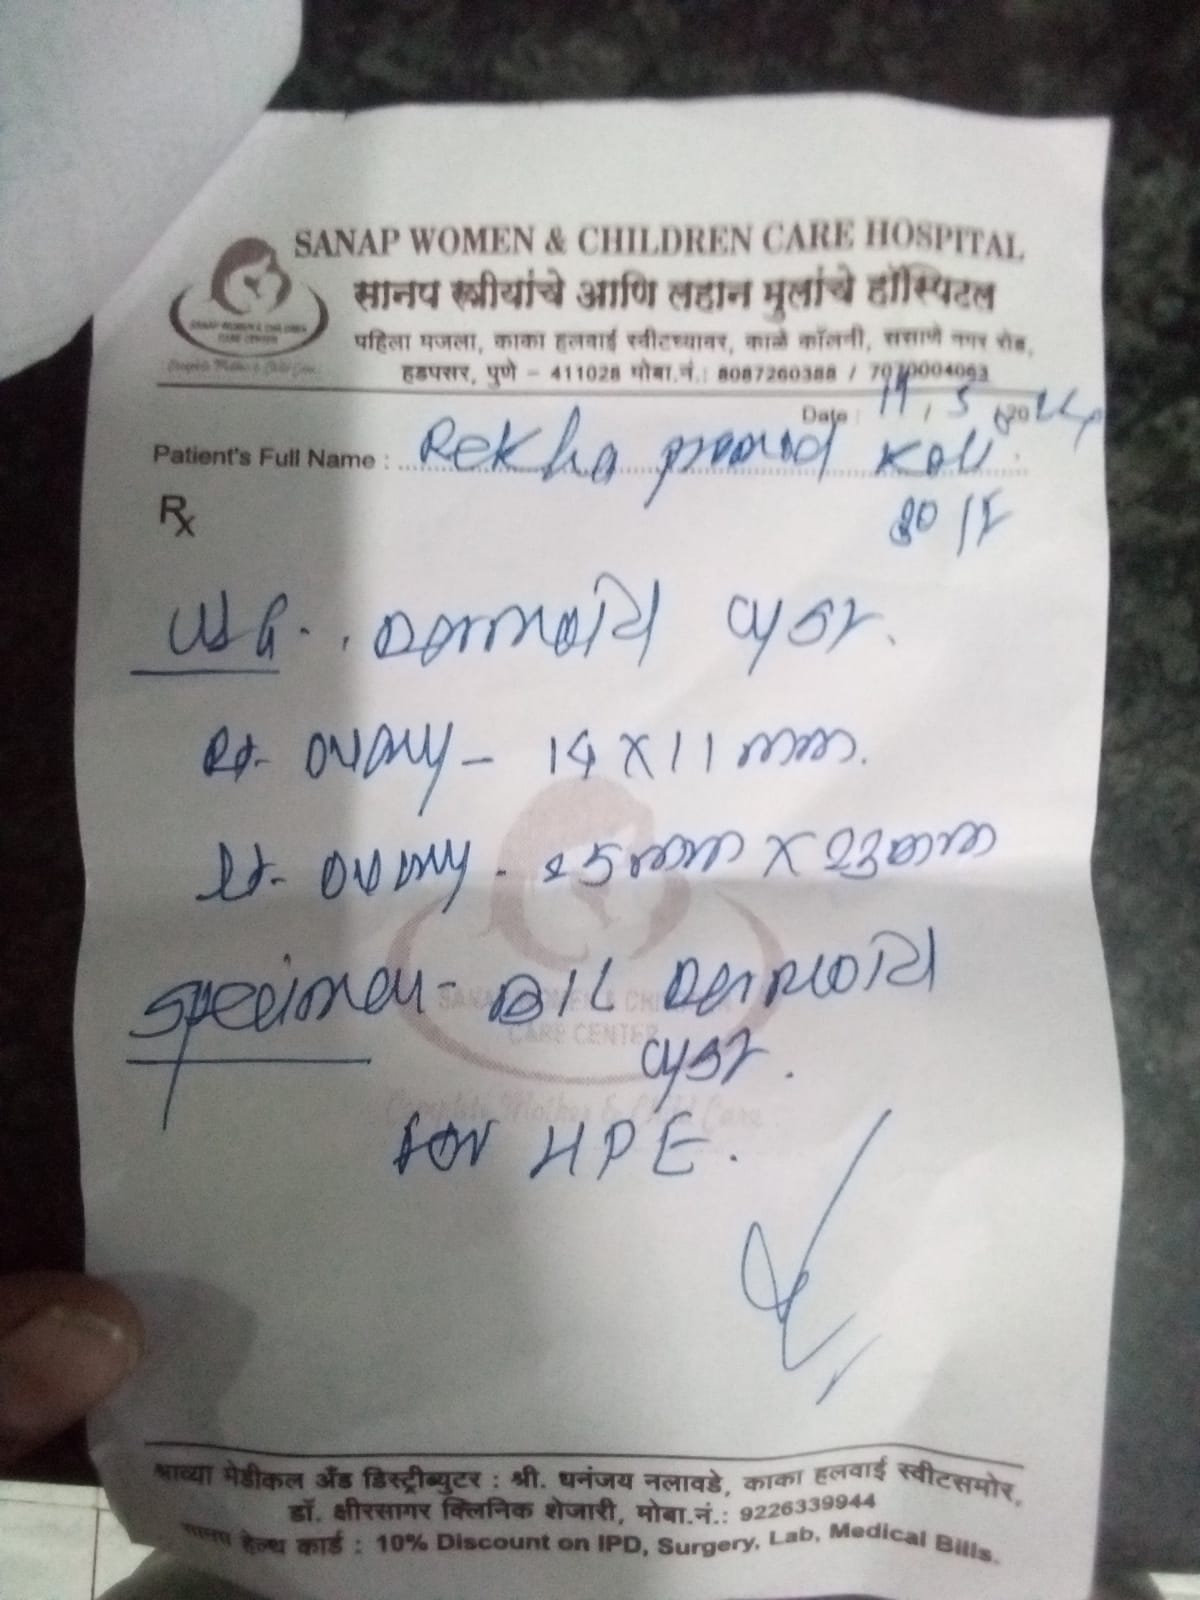 SANAP WOMEN & CHILDREN CARE HOSPITAL
सानप स्त्रीयांचे आणि लहान मुलांचे हॉस्पिटल
पहिला मजला, काका हलवाई स्वीटच्यावर, काळे कॉलनी, ससाणे नगर रोड,
हडपसर, पुणे - 411028 मोबा.नं.: 8087260388 / 7070004063
SANAP WOMEN & CHILDREN
CARE CENTER
Complete Mother & Child Care
Date : / 5 /2024
Patient's Full Name : Rekha Koli
Rx
30 / F
USG - Dermoid cyst.
Rt. ovary - 14 X 11 mm.
Lt. ovary - 25mm X 23mm
Specimen - B/L Dermoid
cyst.
for HPE.
SANAP WOMEN & CHILDREN
CARE CENTER
Complete Mother & Child Care
श्राव्या मेडीकल अँड डिस्ट्रीब्युटर : श्री. धनंजय नलावडे, काका हलवाई स्वीटसमोर,
डॉ. क्षीरसागर क्लिनिक शेजारी, मोबा.नं.: 9226339944
सानप हेल्थ कार्ड : 10% Discount on IPD, Surgery, Lab, Medical Bills.